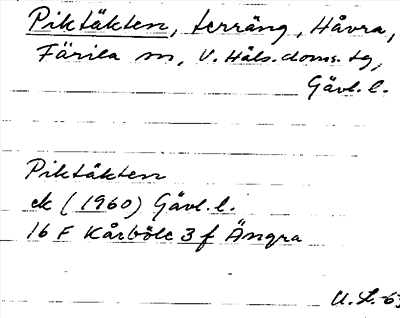 Piktäkten, terräng, Håvra,
Färila sn, V. Häls. doms. tg,
Gävl. l.
Piktäkten
ek (1960) Gävl. l.
16 F Kårböle 3 f Ängra
U.L.-63